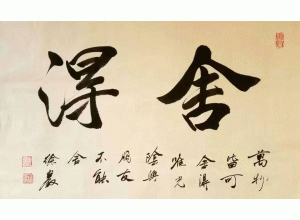 舍得
萬物
皆可
舍得
唯光
陰與
朋友
不能
舍
徐